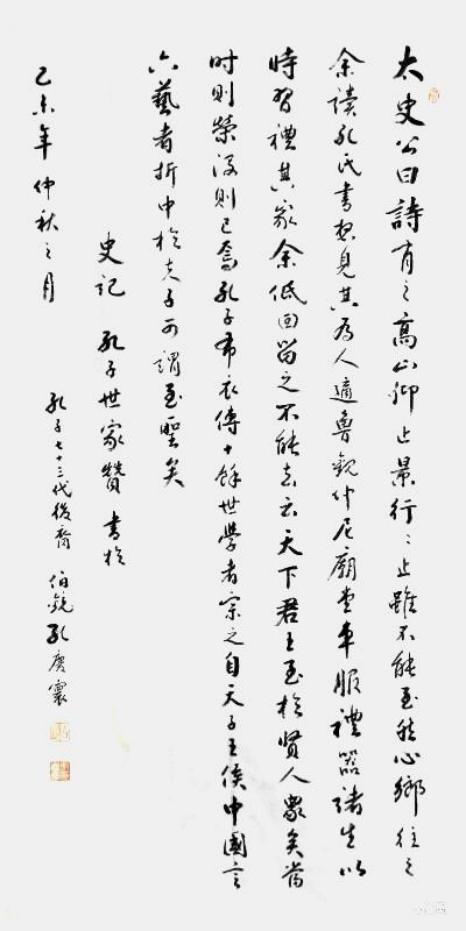 太史公曰詩有之高山仰止景行行止雖不能至然心鄉往之
余讀孔氏書想見其為人適魯觀仲尼廟堂車服禮器諸生以
時習禮其家余低回留之不能去云天下君王至於賢人眾矣當
时則榮沒則已焉孔子布衣傳十餘世學者宗之自天子王侯中國言
六藝者折中於夫子可謂至聖矣
史記 孔子世家贊 書於
乙未年仲秋之月
孔子七十三代後裔 伯銳 孔慶寰